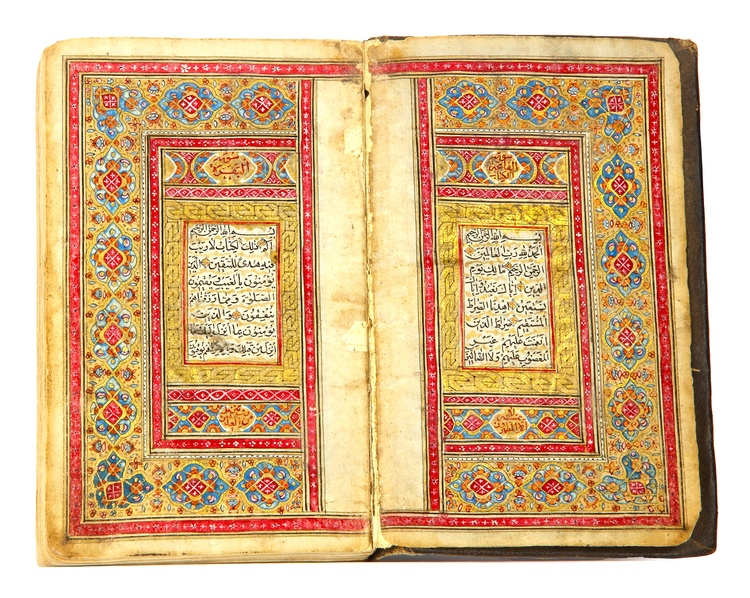 سورة
فاتحة
الكتاب
بسم الله الرحمن الرحيم
الحمد لله رب العالمين
الرحمن الرحيم مالك يوم
الدين إياك نعبد وإياك
نستعين اهدنا الصراط
المستقيم صراط الذين
أنعمت عليهم غير
المغضوب عليهم ولا الضالين
سورة
البقرة
بسم الله الرحمن الرحيم
الم ذلك الكتاب لا ريب
فيه هدى للمتقين الذين
يؤمنون بالغيب ويقيمون
الصلوة ومما رزقناهم
ينفقون والذين
يؤمنون بما أنزل إليك وما
أنزل من قبلك وبالآخرة هم يوقنون
تنزيل
من رب العالمين